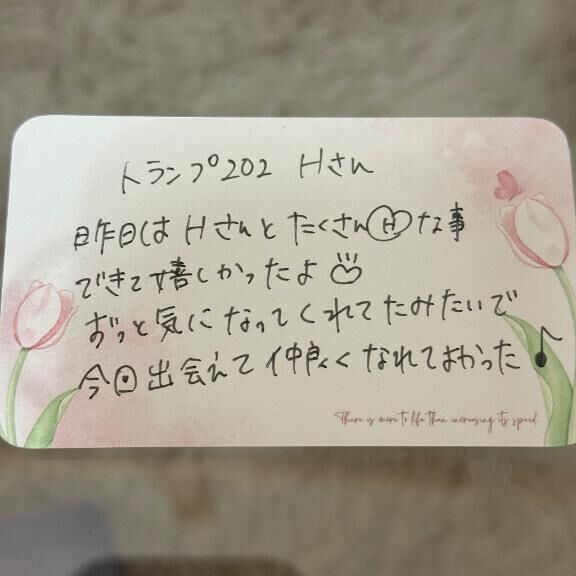 トランプ202 Hさん
昨日は Hさんと たくさんHな事
できて嬉しかったよ
ずっと気になってくれてたみたいで
今回出会えて仲良くなれてよかった♪
There is more to life than increasing its speed.